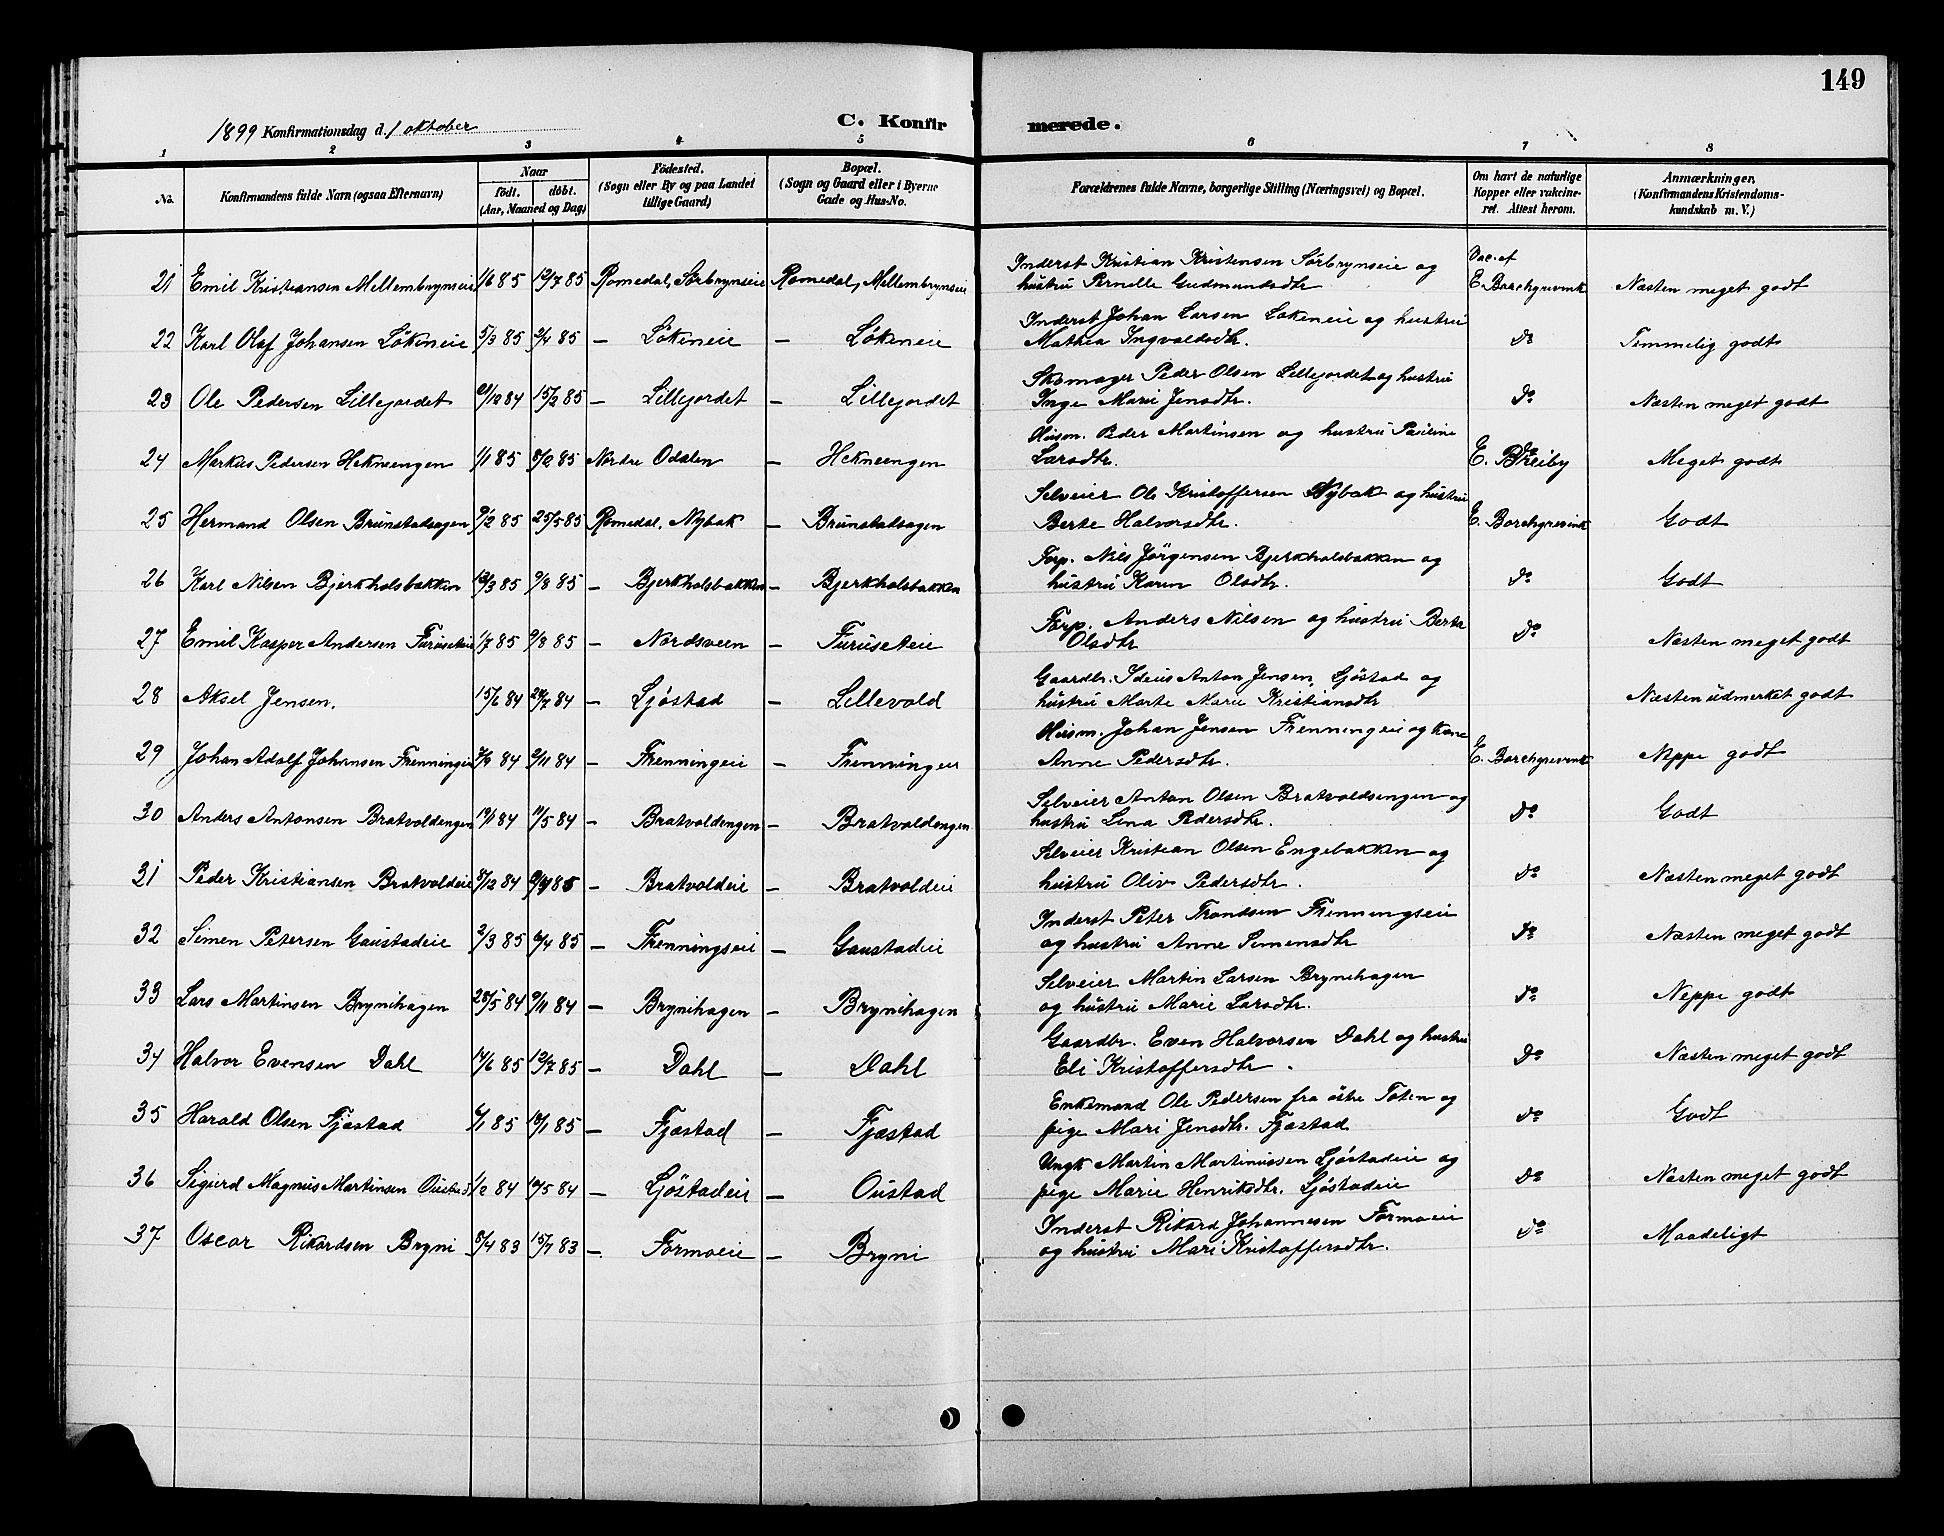 149
1899 Konfirmationsdag d. 1 oktober
C. Konfirmerede.
1 2 3 4 5 6 7 8
No. | Konfirmandens fulde Navn (ogsaa Efternavn) | Naar födt. döbt. (Aar, Maaned og Dag) | Födested. (Sogn eller By og paa Landet tillige Gaard) | Bopæl. (Sogn og Gaard eller i Byerne Gade og Hus-No. | Forældrenes fulde Navne, borgerlige Stilling (Næringsvei) og Bopæl. | Om havt de naturlige Kopper eller vakcineret. Attest herom. | Anmærkninger, (Konfirmandens Kristendomskundskab m. V.)
21 Emil Kristiansen Mellembrynseie 1/6 85 12/7 85 Romedal, Sörbrynseie Romedal, Mellembrynseie Inderst Kristian Kristensen Sörbrynseie og hustru Pernille Gudmundsdtr Vac. af E. Borchgrevink Næsten meget godt
22 Karl Olaf Johansen Lökeneie 5/3 85 2/4 85 — Lökeneie — Lökeneie Inderst Johan Larsen Lökeneie og hustru Mathea Ingvaldsdtr. do Temmelig godt
23 Ole Pedersen Lillejordet /12 84 15/2 85 — Lillejordet — Lillejordet Skomager Peder Olsen Lillejordet og hustru Inge Marie Jensdtr. do Næsten meget godt
24 Markus Pedersen Hekneengen 1/1 85 8/2 85 Nordre Odalen — Hekneengen Husm. Peder Martinsen og hustru Pauline Larsdtr. E. Meget godt
25 Hermand Olsen Brunstadsagen 9/2 85 25/5 85 Romedal, Nybak — Brunstadsagen Selveier Ole Kristoffersen Nybak og hustru Berte Halvorsdtr. E. Borchgrevink Godt
26 Karl Nilsen Bjerkholsbakken 12/3 85 9/8 85 — Bjerkholsbakken — Bjerkholsbakken Forp. Nils Jörgensen Bjerkholsbakken og hustru Karen Olsdtr. do Godt
27 Emil Kasper Andersen Furuseteie 1/7 85 9/8 85 — Nordsveen — Furuseteie Forp. Anders Nilsen og hustru Berte Olsdtr do Næsten meget godt
28 Aksel Jensen. 15/6 84 20/7 84 — Ljöstad — Lillevold Gaardbr. Anton Jensen Ljöstad og hustru Marte Marie Kristiansdtr Næsten udmerket godt
29 Johan Adolf Johansen Frenningeie 7/9 84 2/11 84 — Frenningeie — Frenningeie Husm. Johan Jensen Frenningeie og kone Anne Pedersdtr. E. Borchgrevink Neppe godt
30 Anders Antonsen Bratvoldengen 19/1 84 11/5 84 — Bratvoldengen — Bratvoldengen Selveier Anton Olsen Bratvoldsengen og hustru Lina Pedersdtr. do Godt
31 Peder Kristiansen Bratvoldeie 3/12 84 85 — Bratvoldeie — Bratvoldeie Selveier Kristian Olsen Engebakken og hustru Oliv Pedersdtr. do Næsten meget godt
32 Simen Petersen Gaustadeie 2/3 85 6/4 85 — Frenningseie — Gaustadeie Inderst Peter Trondsen Frenningseie og hustru Anne Simensdtr do Næsten meget godt
33 Lars Martinsen Brynihagen 28/5 84 9/11 84 — Brynihagen — Brynihagen Selveier Martin Larsen Brynihagen og hustru Marie Larsdtr. do Neppe godt
34 Halvor Evensen Dahl 14/6 85 12/7 85 — Dahl — Dahl Gaardbr. Even Halvorsen Dahl og hustru Eli Kristoffersdtr. do Næsten meget godt
35 Harald Olsen Fjæstad 6/1 85 18/1 85 — Fjæstad — Fjæstad Enkemand Ole Pedersen fra östre Toten og pige Mari Jensdtr. Fjæstad do Godt
36 Sigurd Magnus Martinsen Oustad 1/2 84 18/5 84 — Ljöstadeie — Oustad Ungk Martin Martinussen Ljöstadeie og pige Marie Henriksdtr. Ljöstadeie do Næsten meget godt
37 Oscar Rikardsen Bryni 8/4 83 15/7 83 — Formoeie — Bryni Inderst Rikard Johannesen Formoeie og hustru Mari Kristoffersdtr. do Maadeligt